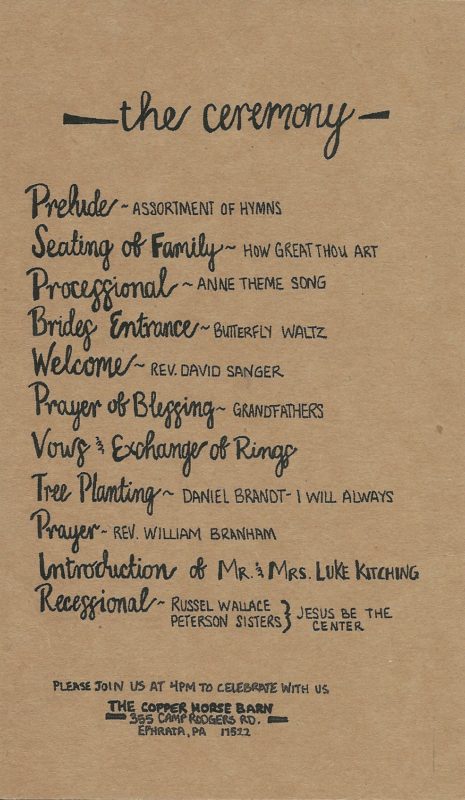 the ceremony
Prelude ~ ASSORTMENT OF HYMNS
Seating of Family ~ HOW GREAT THOU ART
Processional ~ ANNE THEME SONG
Brides Entrance ~ BUTTERFLY WALTZ
Welcome ~ REV. DAVID SANGER
Prayer of Blessing ~ GRANDFATHERS
Vows & Exchange of Rings
Tree Planting ~ DANIEL BRANDT - I WILL ALWAYS
Prayer ~ REV. WILLIAM BRANHAM
Introduction of MR. & MRS. LUKE KITCHING
Recessional ~ RUSSEL WALLACE
PETERSON SISTERS } JESUS BE THE
CENTER
PLEASE JOIN US AT 4PM TO CELEBRATE WITH US
THE COPPER HORSE BARN
355 CAMP RODGERS RD.
EPHRATA, PA 17522